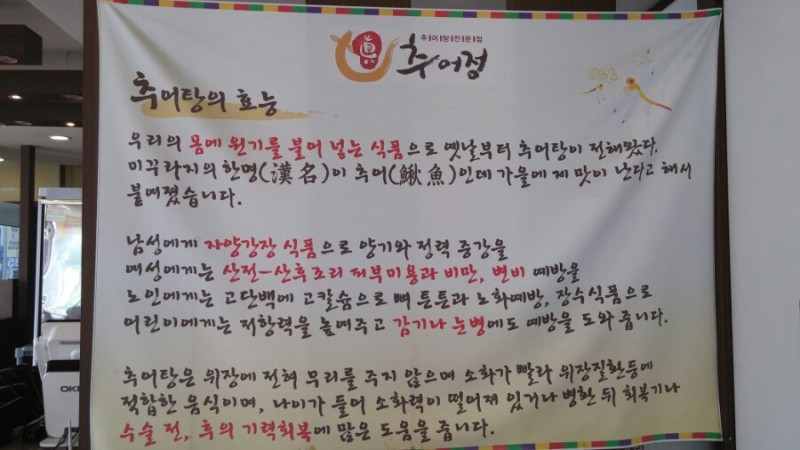 추어탕전문점
眞 추어정
추어탕의 효능
우리의 몸에 원기를 불어 넣는 식품으로 옛날부터 추어탕이 전해왔다.
미꾸라지의 한명(漢名)이 추어(鰍魚)인데 가을에 제 맛이 난다고 해서
불여졌습니다.
남성에게 자양강장 식품으로 양기와 정력 증강을
여성에게는 산전-산후조리 피부미용과 비만, 변비 예방을
노인에게는 고단백에 고칼슘으로 뼈 튼튼과 노화예방, 장수식품으로
어린이에게는 저항력을 높여주고 감기나 눈병에도 예방을 도와 줍니다.
추어탕은 위장에 전혀 무리를 주지 않으며 소화가 빨라 위장질환등에
적합한 음식이며, 나이가 들어 소화력이 떨어져 있거나 병환 뒤 회복기나
수술 전, 후의 기력회복에 많은 도움을 줍니다.